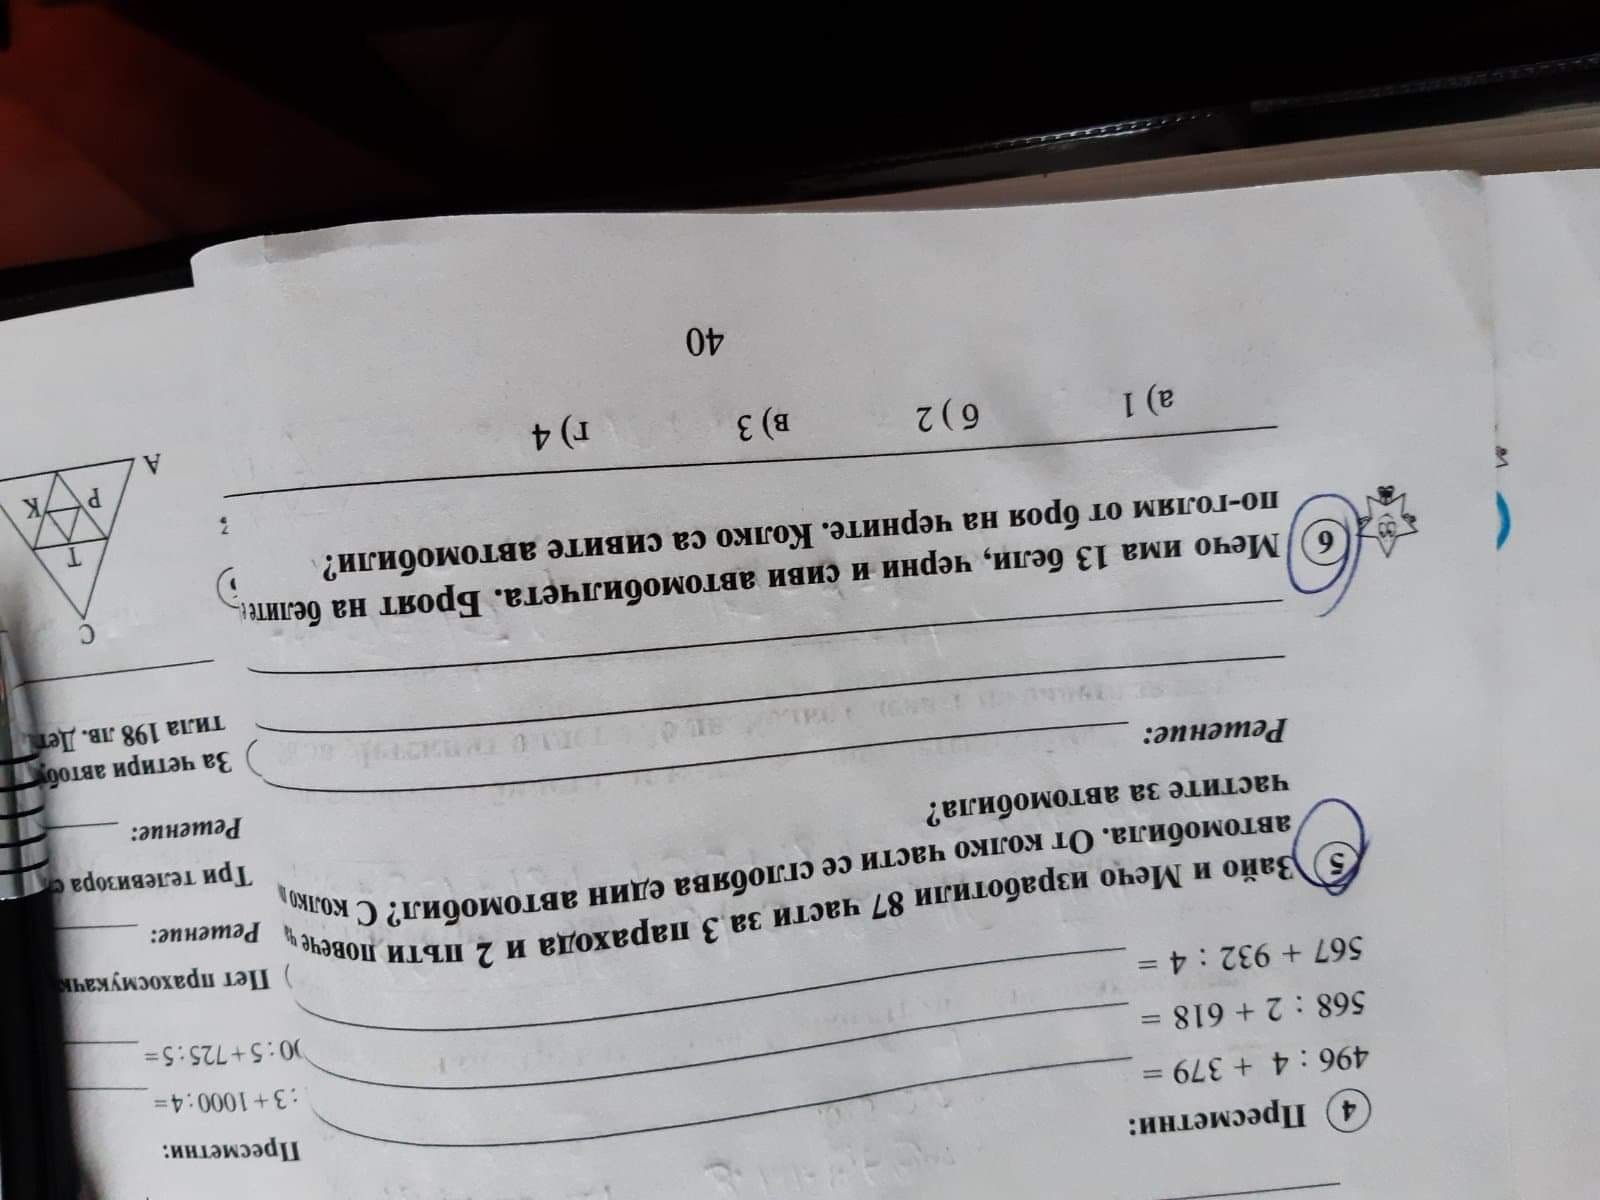 4 Пресметни:
496 : 4 + 379 =
568 : 2 + 618 =
567 + 932 : 4 =
5 Зайо и Мечо изработили 87 части за 3 парахода и 2 пъти повече
автомобила. От колко части се сглобява един автомобил? С
частите за автомобила?
Решение:
6 Мечо има 13 бели, черни и сиви автомобилчета. Броят на белите
по-голям от броя на черните. Колко са сивите автомобили?
а) 1 б) 2 в) 3 г) 4
40
Пресметни:
: 3 + 1000 : 4 =
: 5 + 725 : 5 =
Пет прахосмукачки
Решение:
Три телевизора
Решение:
За четири
тила 198 лв.
C
T
P K
A